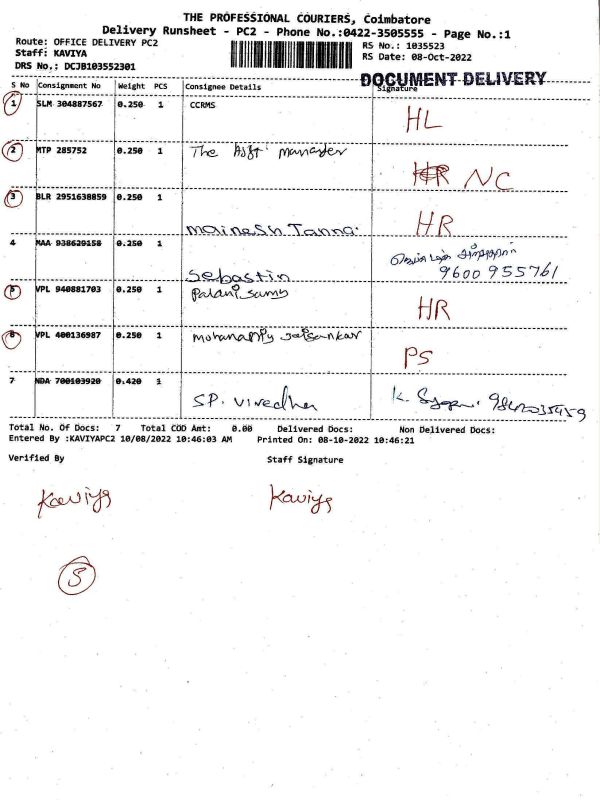 THE PROFESSIONAL COURIERS, Coimbatore
Delivery Runsheet - PC2 - Phone No.:0422-3505555 - Page No.:1
Route: OFFICE DELIVERY PC2
Staff: KAVIYA
DRS No.: DCJB103552301
RS No.: 1035523
RS Date: 08-Oct-2022
DOCUMENT DELIVERY
S No Consignment No Weight PCS Consignee Details Signature
1 SLM 304887567 0.250 1 CCRMS HL
2 MTP 285752 0.250 1 The Asst manager HR NC
3 BLR 2951638859 0.250 1 Mainesh Tanna. HR
4 MAA 938629158 0.250 1 Sebastin 9600955761
5 VPL 940881703 0.250 1 Palanisamy HR
6 VPL 400136987 0.250 1 PS
7 NDA 700103920 0.420 1 SP. K.
Total No. Of Docs: 7 Total COD Amt: 0.00 Delivered Docs: Non Delivered Docs:
Entered By :KAVIYAPC2 10/08/2022 10:46:03 AM Printed On: 08-10-2022 10:46:21
Verified By Staff Signature
Kaviya Kaviya
5